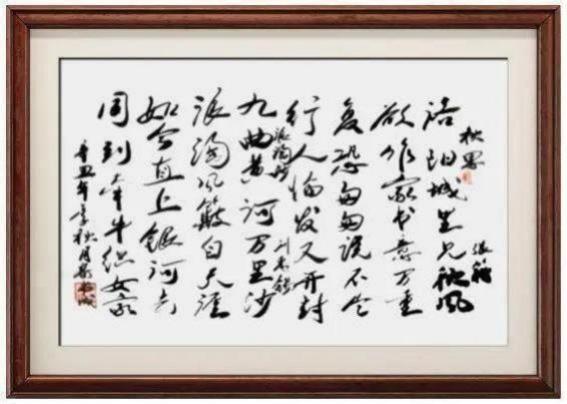 秋思
张籍
洛阳城里见秋风
欲作家书意万重
复恐匆匆说不尽
行人临发又开封
浪淘沙
刘禹锡
九曲黄河万里沙
浪淘风簸自天涯
如今直上银河去
同到牵牛织女家
辛丑年 秋月